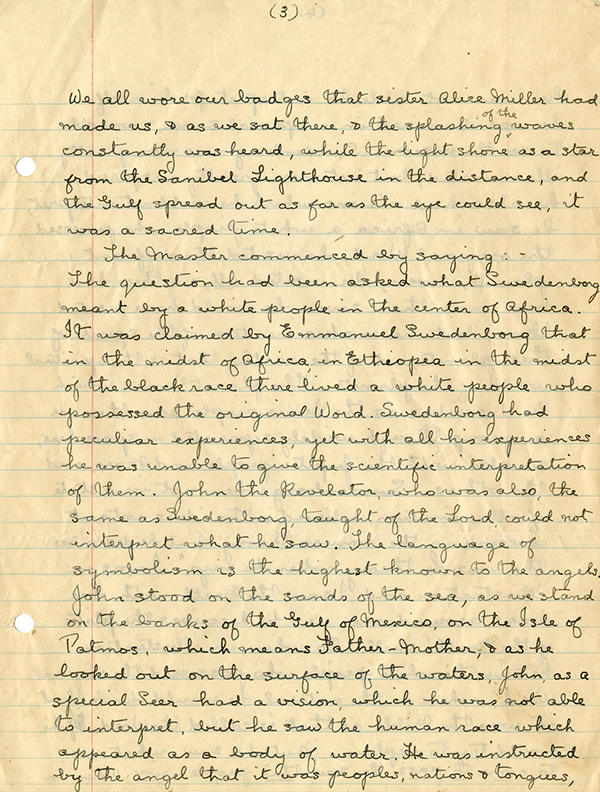 (3)
We all wore our badges that sister Alice Miller had
of the
made us, & as we sat there, & the splashing waves
constantly was heard, while the light shone as a star
from the Sanibel Lighthouse in the distance, and
the Gulf spread out as far as the eye could see, it
was a sacred time.
The Master commenced by saying: -
The question had been asked what Swedenborg
meant by a white people in the center of Africa.
It was claimed by Emmanuel Swedenborg that
in the midst of Africa, in Etheopea in the midst
of the black race there lived a white people who
possessed the original Word. Swedenborg had
peculiar experiences, yet with all his experiences
he was unable to give the scientific interpretation
of them. John the Revelator, who was also, the
same as Swedenborg, taught of the Lord, could not
interpret what he saw. The language of
symbolism is the highest known to the angels.
John stood on the sands of the sea, as we stand
on the banks of the Gulf of Mexico, on the Isle of
Patmos, which means Father-Mother, & as he
looked out on the surface of the waters, John, as a
special Seer had a vision, which he was not able
to interpret, but he saw the human race which
appeared as a body of water. He was instructed
by the angel that it was peoples, nations & tongues,